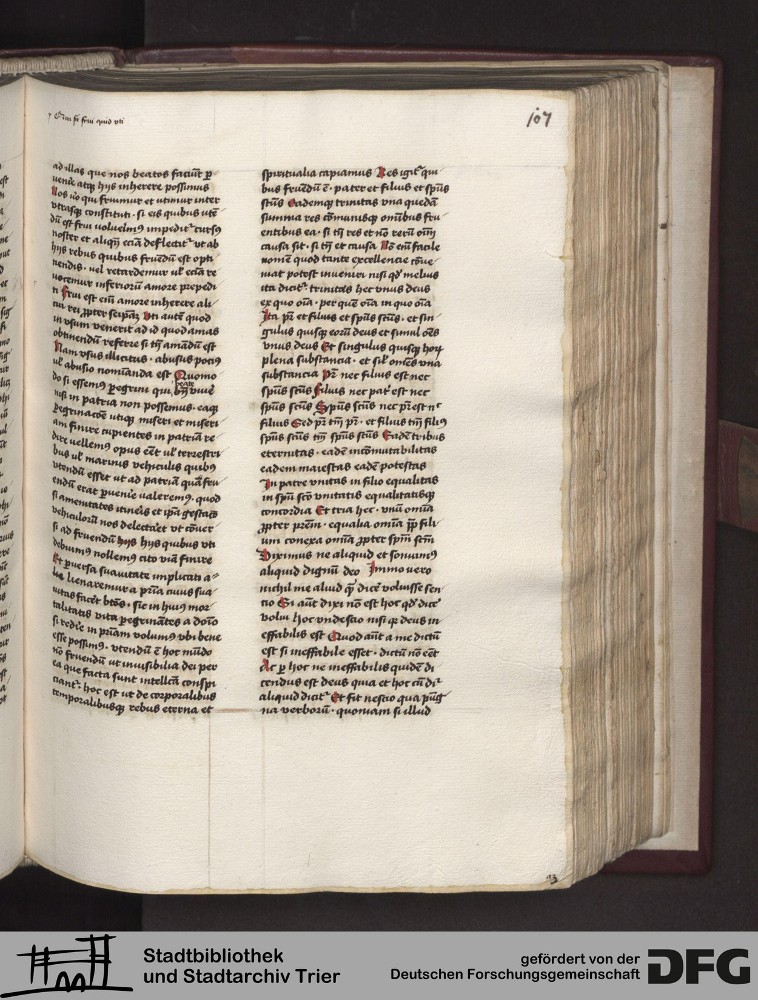 107
ad illas que nos beatos faciūt ꝑ
uenire atqꝫ hijs inherere possimus
Nos v̊o qui fruimur et utimur inter
utrasqꝫ constituti · si eis quibus utē
dū est frui voluerimꝰ impedit᷑ cursꝰ
noster et aliqn̄ eciā deflectit᷑ ut ab
hijs rebus quibus fruendū est opti
nendis · vel retardemur ul̓ eciā re
uocemur inferiorū amore prepedi
ti Frui est em̄ amore inherere ali
cui rei ꝓpter seipāꝫ Uti autē quod
in usum venerit ad id quod amas
obtinendū referre si tn̄ amādū est
Nam usus illicitus · abusus pociꝰ
ul̓ abusio nominanda est Quomo
do si essemꝰ ꝑegrini qui beate viuē
nisi in patria non possemus · eaqꝫ
ꝑegrinacōe utiqꝫ miseri et miseri
am finire cupientes in patriā re
dire vellemꝰ opus eēt ul̓ terrestri
bus ul̓ marinis vehiculis quibꝰ
utendū esset ut ad patriā quā fru
endū erat ꝑuenire valeremꝰ · quod
si amenitates itineris et ip̄a gestacō
vehiculorū nos delectaret ut cōuer
si ad fruendū hijs quibus uti
debuimꝰ nollemꝰ cito viā finire
Et ꝑuersa suauitate implicati a
lienaremur a p̄ria cuius sua
uitas facēt btōs · sic in huiꝰ mor
talitatis vita ꝑegrinātes a dōno
si redire in p̄riam volumꝰ ubi beate
esse possimꝰ · utendū ē hoc mūdo
nō fruendū ut inuisibilia dei per
ea que facta sunt intellcā conspi
ciant᷑ · hoc est ut de corporalibus
temporalibusqꝫ rebus eterna et
spiritualia capiamus Res igit᷑ qui
bus fruendū ē · pater et filius et sp̄us
sctūs eademqꝫ trinitas vna quedā
summa res cōmunisqꝫ omībus fru
entibus ea · si tn̄ res et nō rerū om̄
causa sit · si tn̄ et causa Nō em̄ facile
nomē quod tante excellencie cōue
niat potest inueniri nisi qd̓ melius
ita dicit᷑ · trinitas hec vnus deus
ex quo oīa · per quē oīa in quo oīa
Ita pr̄ et filius et sp̄us sctūs · et sin
gulus quisqꝫ eorū deus et simul oēs
vnus deus Et singulus quisqꝫ horꝫ
plena substancia · et sil̓ omēs vna
substancia Pr̄ nec filius est nec
sp̄us sctūs Filius nec pat̓ est nec
sp̄us sctūs Sp̄us sctūs nec pr̄ est nc̄
filius Sed pr̄ tm̄ pr̄ · et filius tm̄ filiꝰ
sp̄us sctūs tm̄ sp̄us sctūs Eadē tribus
eternitas · eadē incōmutabilitas
eadem maiestas eadē potestas
In patre vnitas in filio equalitas
in sp̄u scō vnitatis equalitatisqꝫ
concordia Et tria hec · vnū omīa
ꝓpter prēm · equalia omīa ꝓp̄ fili
um conexa omīa ꝓpter sp̄m sctm̄
Diximus ne aliquid et sonuimꝰ
aliquid dignū deo Immo vero
nichil me aliud qꝫ dicē voluisse sen
cio Si aut̄ dixi nō est hoc qd̓ dicē
volui hoc vnde scio nisi qꝫ deus in
effabilis est Quod aut̄ a me dictū
est si ineffabile esset · dictū nō eēt
Ac ꝑ hoc ne ineffabilis quidē di
cendus est deus quia et hoc cū dr̄
aliquid dicit᷑ Et fit nescio qua pug̃
na verborū · quoniam si illud
Stadtbibliothek
und Stadtarchiv Trier
gefördert von der
Deutschen Forschungsgemeinschaft
DFG